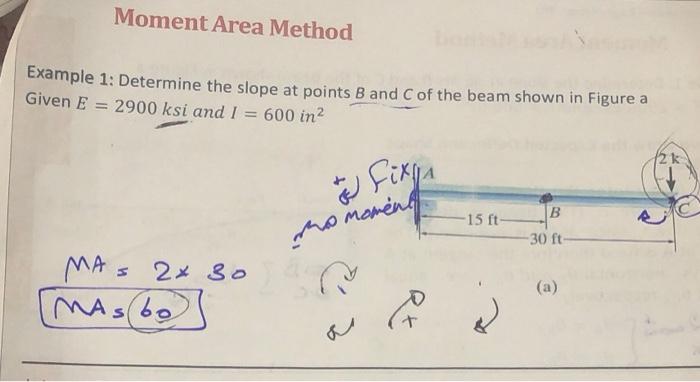 Moment Area Method
Example 1: Determine the slope at points B and C of the beam shown in Figure a
Given E = 2900 ksi and I = 600 in²
2 k
+ Fix A
moment
B
C
15 ft
30 ft
(a)
MA = 2 x 30
MA = 60
+